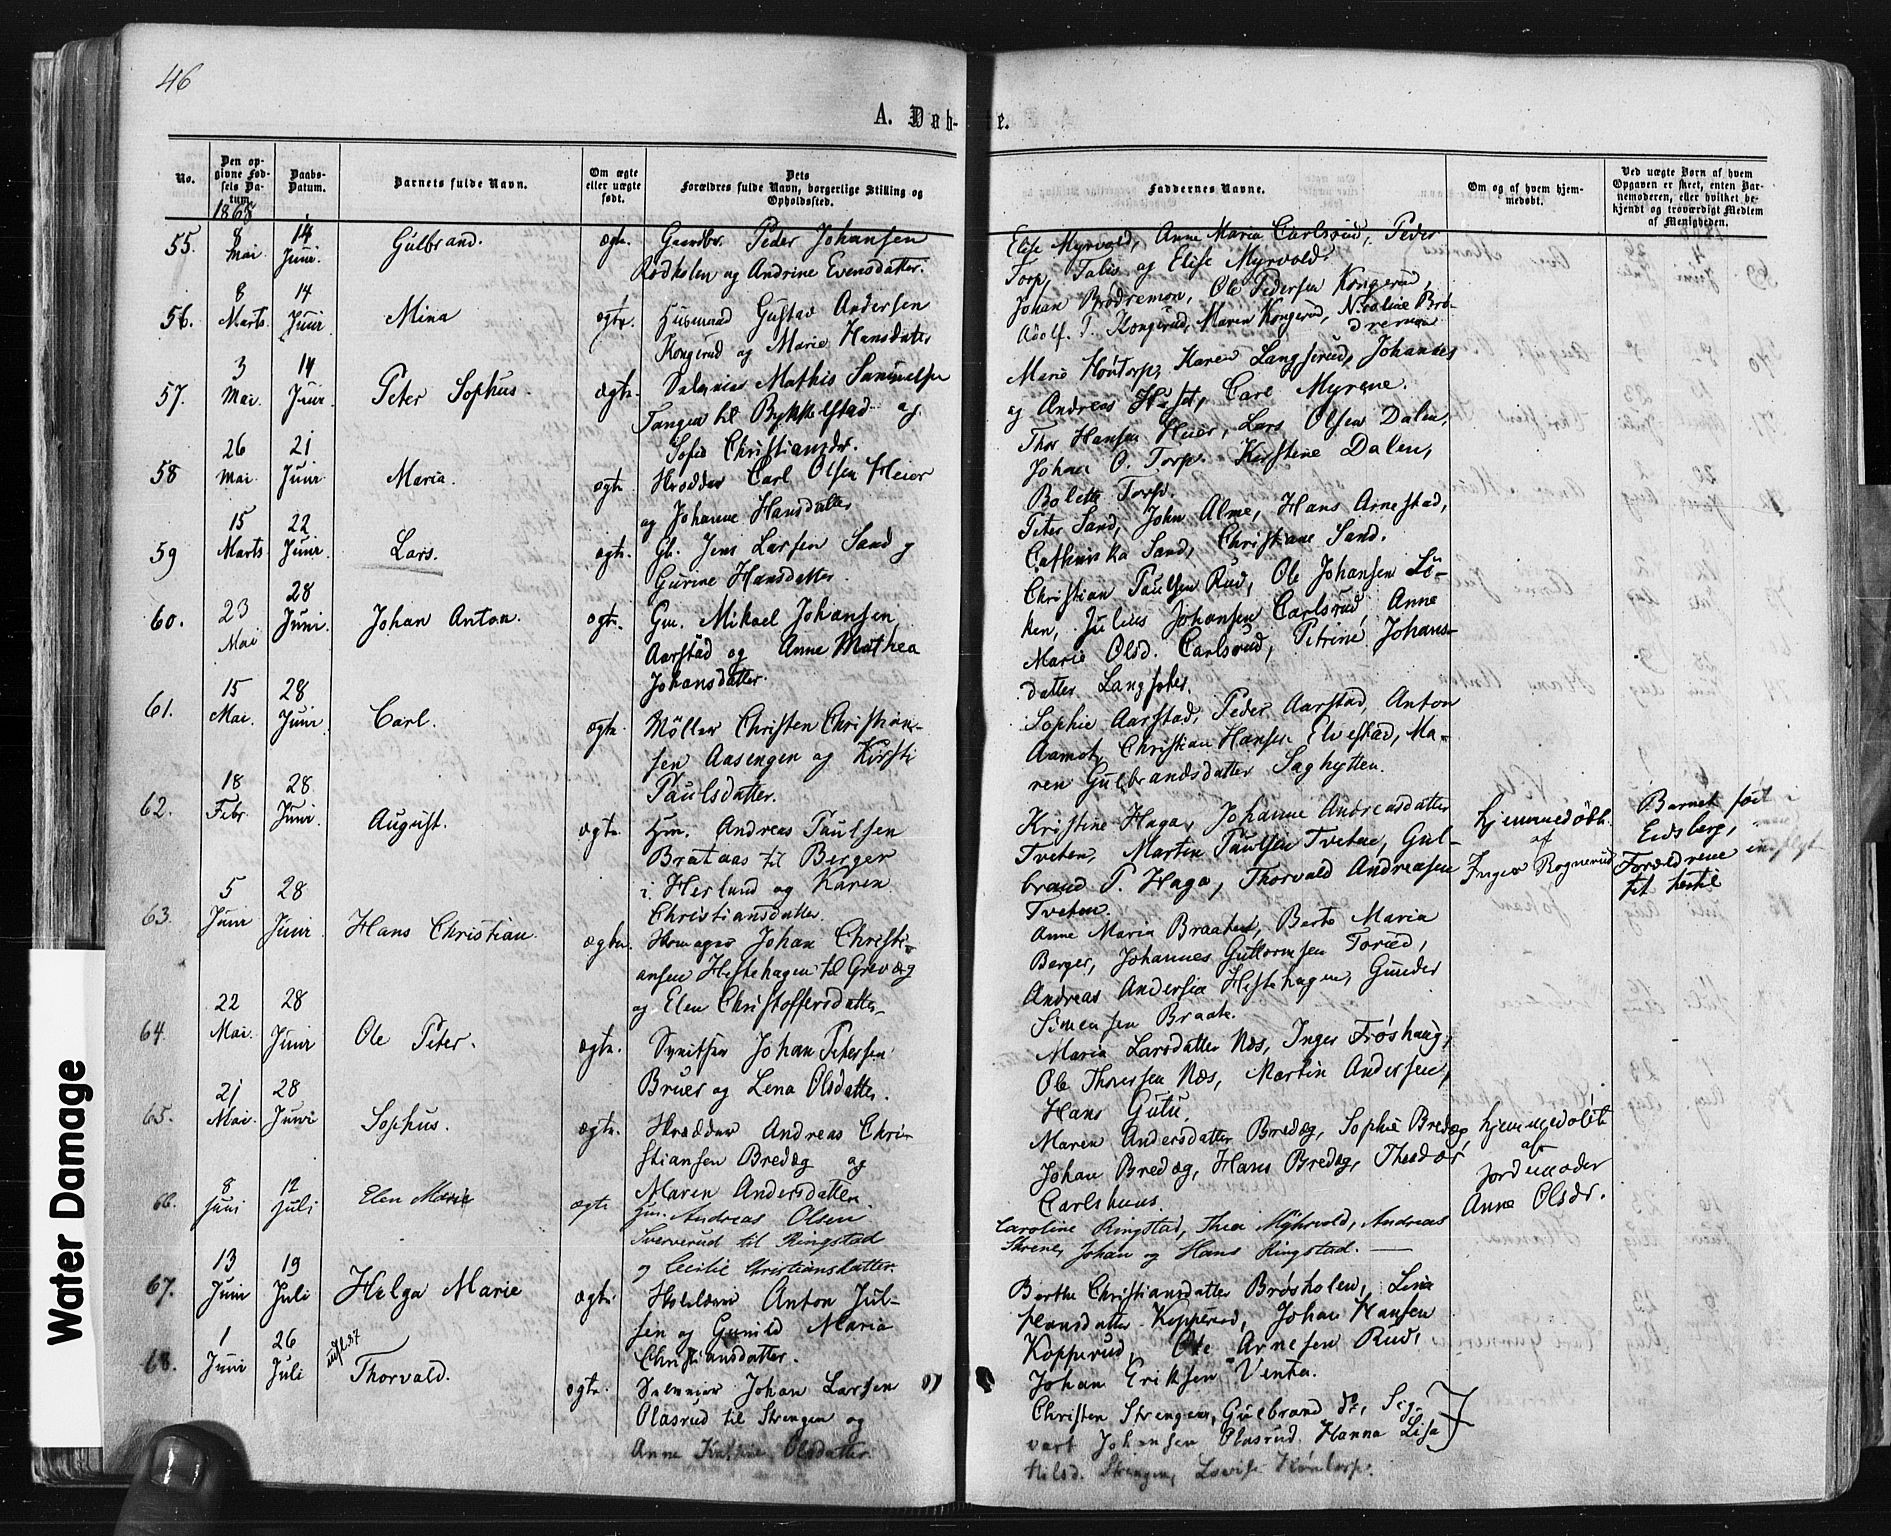 46
A. Døb-
e.
No.
Den op-
givne Fød-
sels Da-
tum.
Daabs-
Datum.
Barnets fulde Navn.
Om ægte
eller uægte
født.
Dets
Forældres fulde Navn, borgerlige Stilling og
Opholdssted.
Faddernes Navne.
Om og af hvem hjem-
medøbt.
Ved uægte Børn af hvem
Opgaven er skeet, enten Bar-
nemoderen, eller hvilket be-
kjendt og troværdigt Medlem
af Menigheden.
1868
55.
8
Mai
14
Juni.
Gulbrand.
ægte.
Peder Johansen
Rødholen og Andrine Evensdatter.
Elise Myrvold, Anne Maria Carlsrud, Peder
Torp, Talis og Elise Myrvold.
56.
8
Marts
14
Juni
Mina
ægte.
Husmand Gustav Andersen
Kongerud og Marie Hansdatter
Johan Brødremon, Ole Pedersen Kongerud,
Adolf. P. Kongerud, Maren Kongerud, Nicoline Brø-
dremon
57.
3
Mai.
14
Juni.
Peter Sophus.
ægte.
Mathis Samuelsen
Tangen til Bykkelstad og
Sofie Christiansdr.
Marie Høntorp, Karen Langserud, Johannes
og Andreas Carl Myrene.
58
26
Mai.
21
Juni
Maria.
ægte.
Skrædder Carl Olsen Heier
og Johanne Hansdatter
Thor Hansen Heier, Lars Olsen Dalen,
Johan O. Torp. Kirstine Dalen,
Bolette Torp.
59
15
Marts
22
Juni.
Lars.
ægte.
Gb. Jens Larsen Sand og
Gurine Hansdatter.
Peter Sand, John Alme, Hans Arnestad,
Cathinka Sand, Christiane Sand.
60.
23
Mai
28
Juni.
Johan Anton.
ægte.
Gm. Mikael Johansen,
Aarstad og Anne Mathea
Johansdatter.
Christian Paulsen Rud, Ole Johansen Lö-
ken, Julius Johansen Carlsrud Anne
Marie Olsd. Carlsrud, Petrine Johans-
datter
61.
15
Mai.
28
Juni.
Carl.
ægte.
Möller Christen Christian-
sen Aasengen og Kirsti
Paulsdatter.
Sophie Aarstad, Peder Aarstad, Anton
Aamot, Christian Hansen Elvestad, Ma-
ren Gulbrandsdatter Saghytten.
62.
18
Febr.
28
Juni.
August.
ægte
Hm. Andreas Paulsen
Brataas til Berger
i Herland og Karen
Christiansdatter.
Kristine Haga, Johanne Andreasdatter
Tveten, Martin Paulsen Tveten, Gul-
brand P. Haga, Thorvald Andreasen
Tveten.
Hjemmedöbt
af
Inger Rognerud
Barnet født
Eidsberg,
Forældrene
63.
5
Juni
28
Juni.
Hans Christian.
ægte
Skomager Johan Christi-
ansen Hestehagen til Grevæg
og Elen Christoffersdatter.
Anne Maria Braaten, Berte Maria
Berger, Johannes Guttormsen Torud,
Andreas Andersen Hestehagen, Gunder
Simensen Braate.
64.
22
Mai.
28
Juni
Ole Peter.
ægte.
Johan Petersen
Bruer og Lena Olsdatter.
Maria Larsdatter Næs, Inger Frøshaug,
Ole Thoresen Næs, Martin Andersen,
Hans Gutu.
65.
21
Mai.
28
Juni
Sophus.
ægte.
Skrædder Andreas Chri-
stiansen Bredæg og
Maren Andersdatter.
Maren Andersdatter Bredæg, Sophie Bredæg
Johan Bredæg, Hans Bredæg, Theodor
Carlshuus.
Hjemmedöbt
af
Jordmoder
Anne Olsdr.
66.
8
Juni
12
Juli
Elen Marie
ægte
Hm. Andreas Olsen
Sververud til Ringstad
og Cecilie Christiansdatter.
Caroline Ringstad, Thea Myhrvold, Andreas
Skrene, Johan og Hans Ringstad.
67.
13
Juni
19
Juli
Helga Marie
ægte.
Skolelærer Anton Jul-
sen og Gunild Maria
Christiansdatter.
Berthe Christiansdatter Brøsholen, Lina
Hansdatter Kopperud, Johan Hansen
Kopperud, Ole Arnesen Rud,
Johan Eriksen Venta.
68.
1
Juni
26
Juli
Thorvald.
ægte.
Johan Larsen
Olasrud til Strengen og
Anne Olsdatter.
Christen Strengen, Gulbrand do, Sig-
vart Johansen Olasrud. Hanna Lisa
Nilsd. Strengen, Lovise Høntorp.
Water Damage